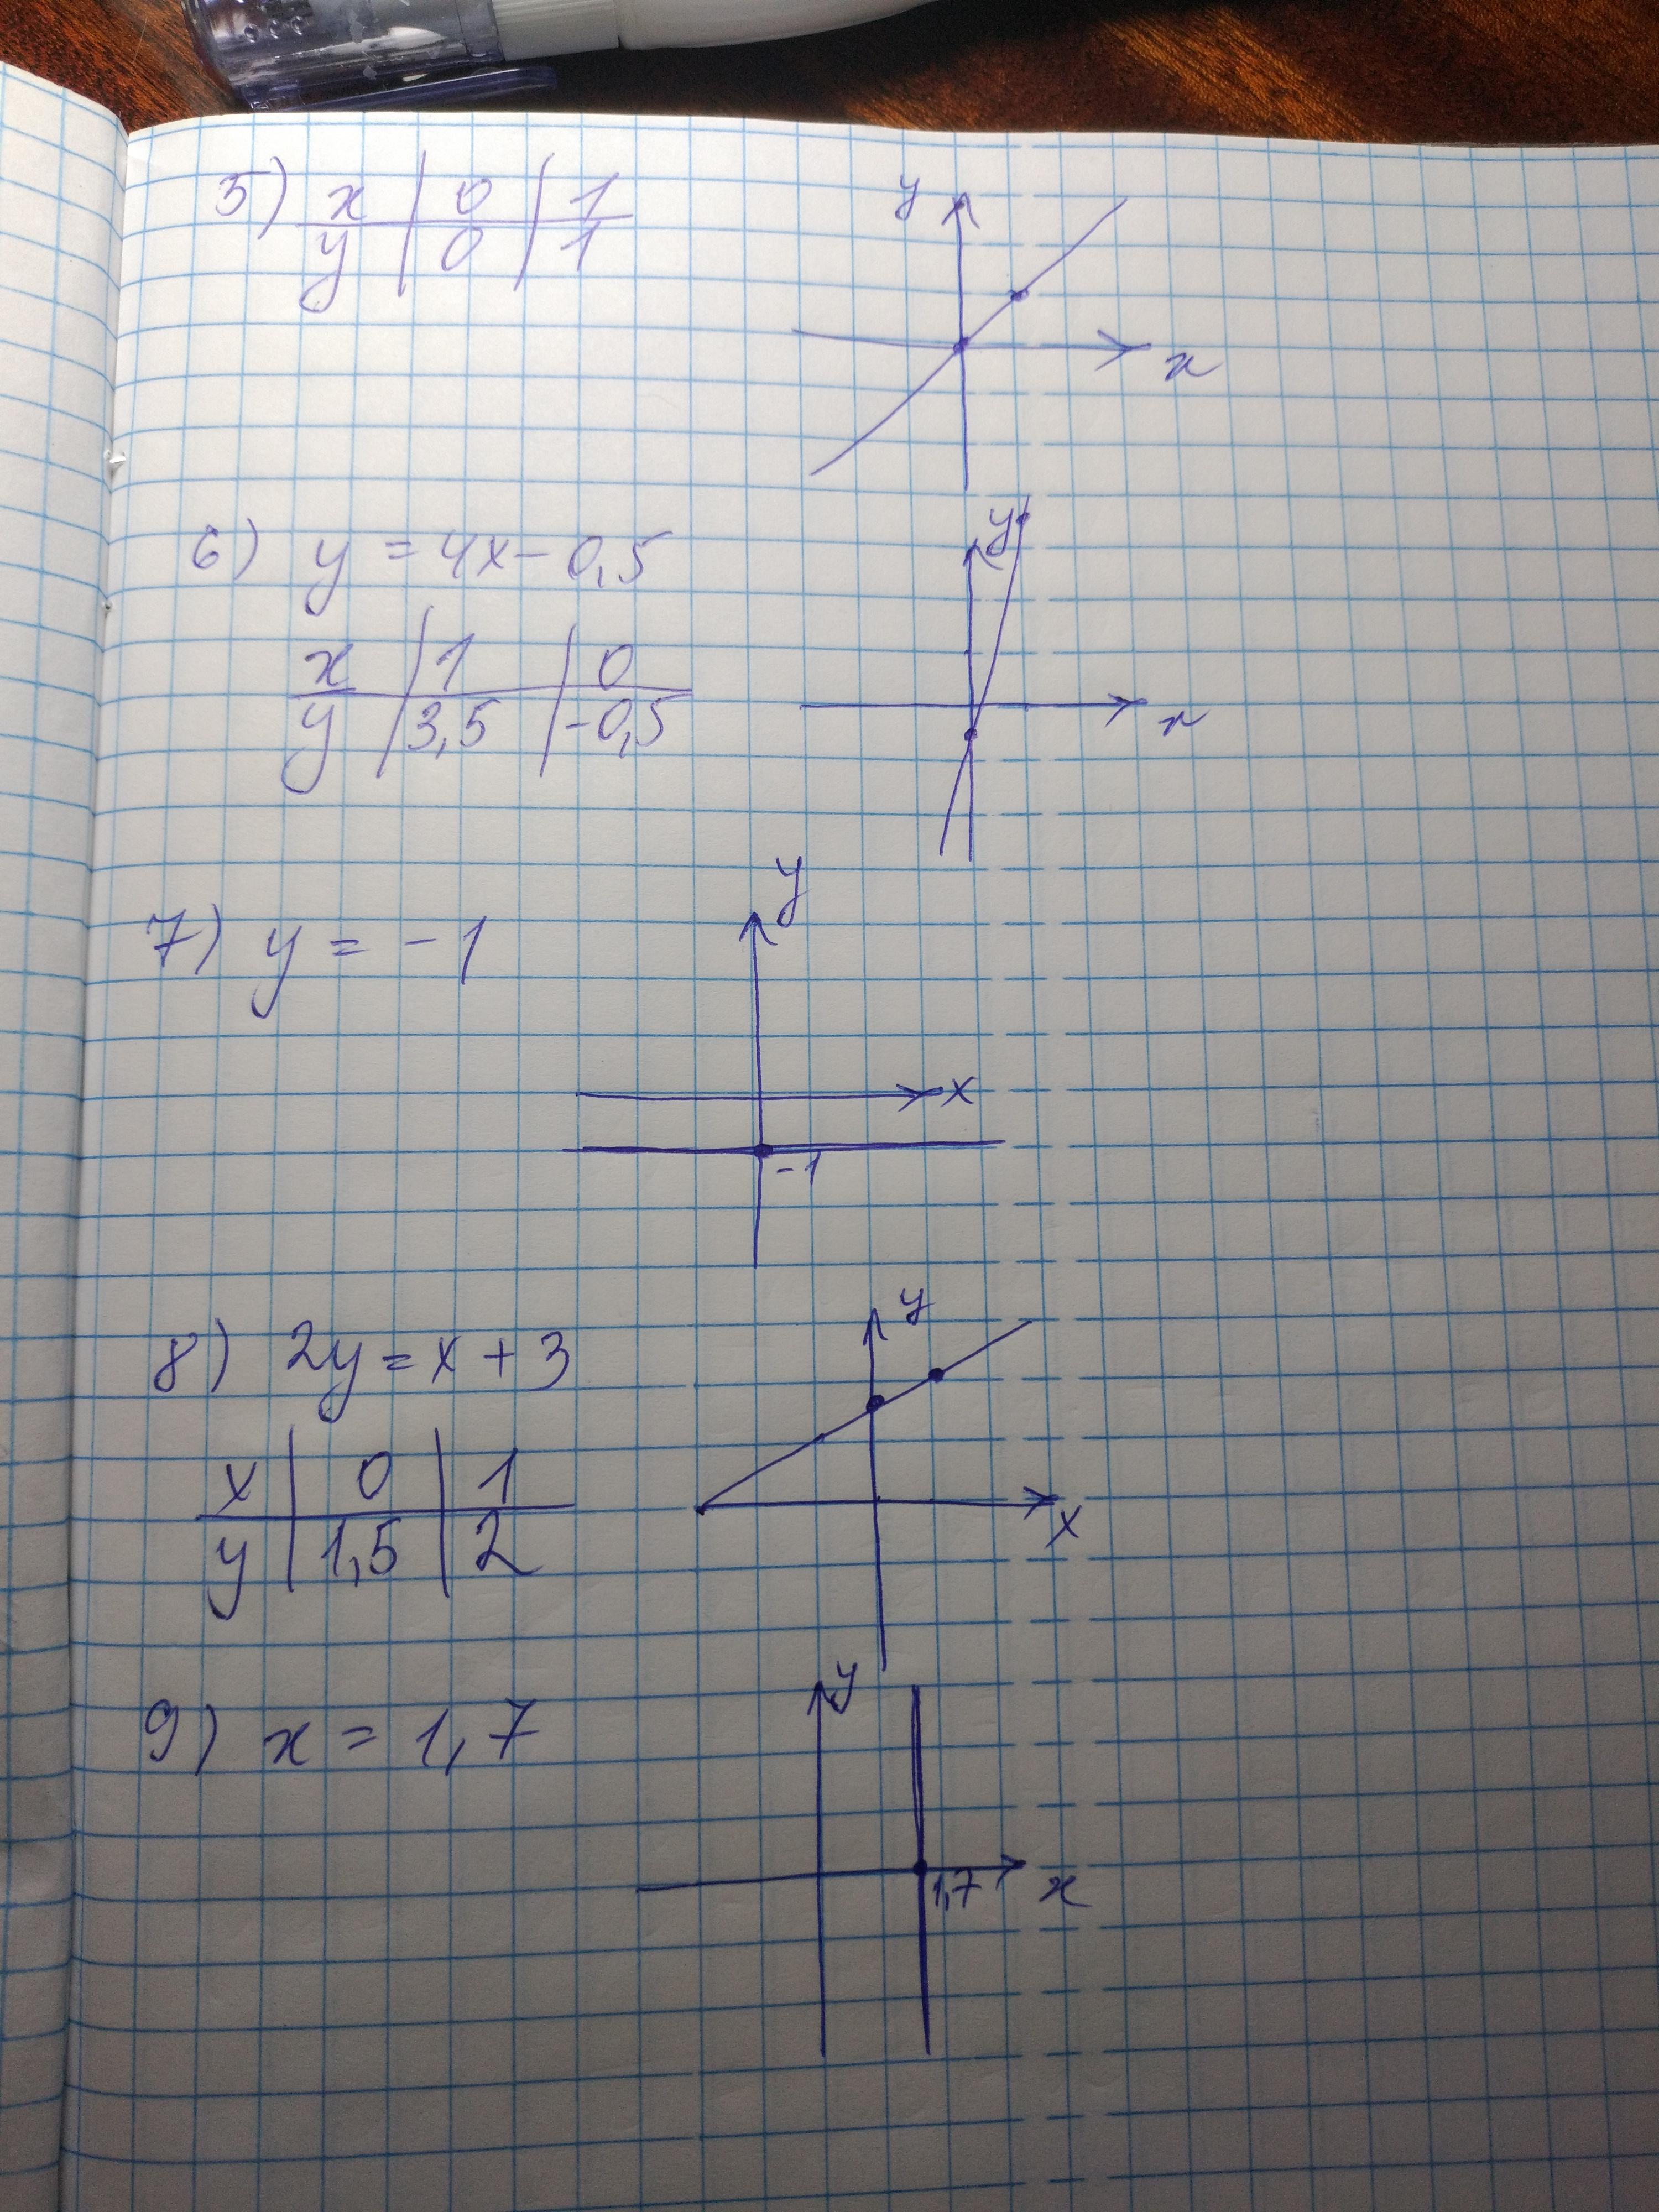 5) x | 0 | 1
y | 0 | 1
y
x
6) y = 4x - 0,5
y
x | 1 | 0
y | 3,5 | -0,5
x
y
7) y = -1
x
-1
y
8) 2y = x + 3
x | 0 | 1
y | 1,5 | 2
x
y
9) x = 1,7
1,7
x